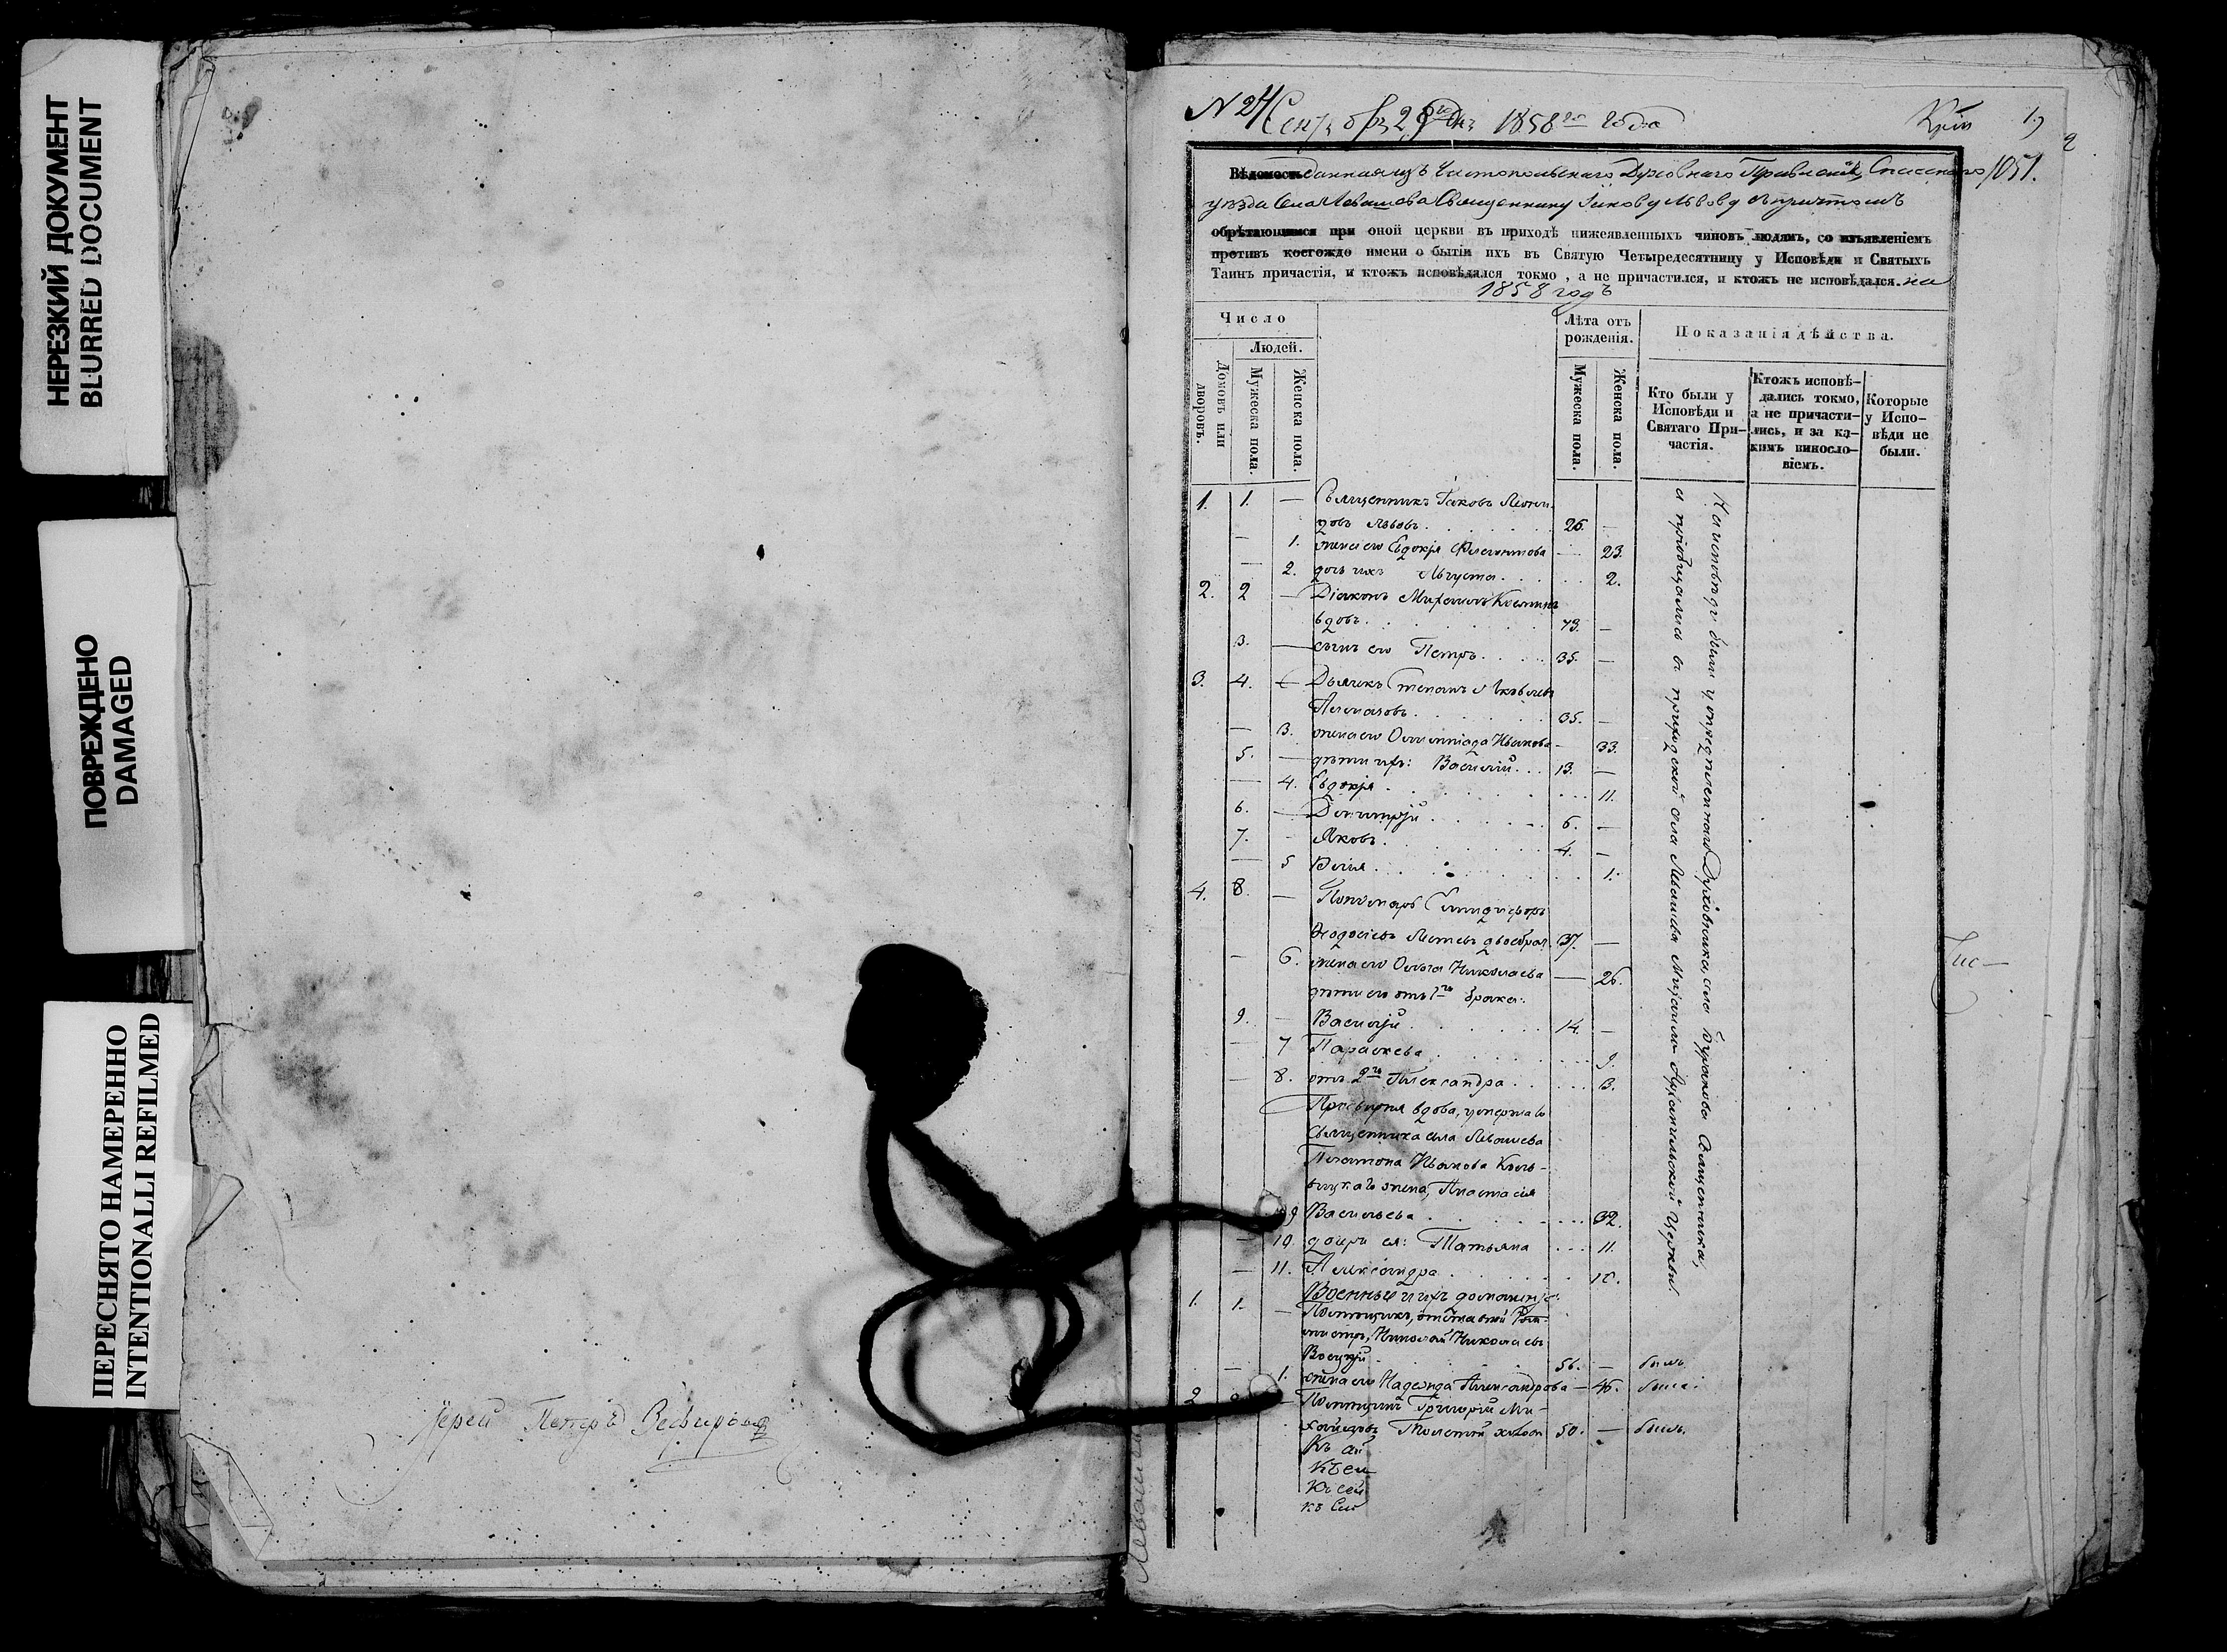 НЕРЕЗКИЙ ДОКУМЕНТ
BLURRED DOCUMENT
ПОВРЕЖДЕНО
DAMAGED
ПЕРЕСНЯТО НАМЕРЕННО
INTENTIONALLI REFILMED
Іерей Петръ
N 24 1858го года
1051.
Вѣдомость данная изъ Чистопольскаго Духовнаго Правленія, Спасскаго
уѣзда Села Левашева Священнику Іакову Львову съ причтомъ
обрѣтающимся при оной церкви въ приходѣ нижеявленныхъ чиновъ людямъ, со изъявленіемъ
противъ коегождо имени о бытіи ихъ въ Святую Четыредесятницу у Исповѣди и Святыхъ
Таинъ причастія, и ктожъ исповѣдался токмо, а не причастился, и ктожъ не исповѣдался. на
1858 годъ
Число
Людей.
Домовъ или дворовъ.
Мужеска пола.
Женска пола.
Лѣта отъ рожденія.
Мужеска пола.
Женска пола.
Показанія дѣйства.
Кто были у Исповѣди и Святаго Причастія.
Ктожъ исповѣдались токмо, а не причастились, и за какимъ винословіемъ.
Которые у Исповѣди не были.
1. 1. — Священникъ Іаковъ
Львовъ 26. —
— 1. жена его Евдокія — 23.
— 2. дочь ихъ Августа 2.
2. 2 — Діаконъ Михаилъ
вдовъ 73. —
3. — сынъ его Петръ 35. —
3. 4. Дьячекъ Степанъ Яковлевъ
35. —
— 3. жена его Олимпіада Иванова — 33.
5. — дѣти ихъ: Василій 13. —
— 4. Евдокія 11.
6. — Димитрій 6. —
7. — Яковъ 4. —
— 5 Юлія 1.
4. 8. — Пономарь
Ѳеодосіевъ 37. —
— 6. жена его Ольга Николаева — 26.
дѣти его отъ 1го брака:
9. — Василій 14. —
— 7 Параскева 9.
— 8. отъ 2го Александра 3.
Просвирня вдова, умершаго
Священника села Левашева
Платона Иванова
жена, Анастасія
9 Васильева 32.
— 10. дочери ея: Татьяна 11.
— 11. Александра
Военные и ихъ домашніе:
1. 1. — Помѣщикъ, отставной
Николай Николаевъ
56. — былъ
— 1. жена его Надежда Александрова — 46. была
2 Помѣщикъ Григорій Ми-
хайловъ Толстой 50. — былъ
На исповѣди были у опредѣленнаго Духовника, села Буракова Священника,
а пріобщались въ приходской села Левашева Михаило-Архангельской Церкви.